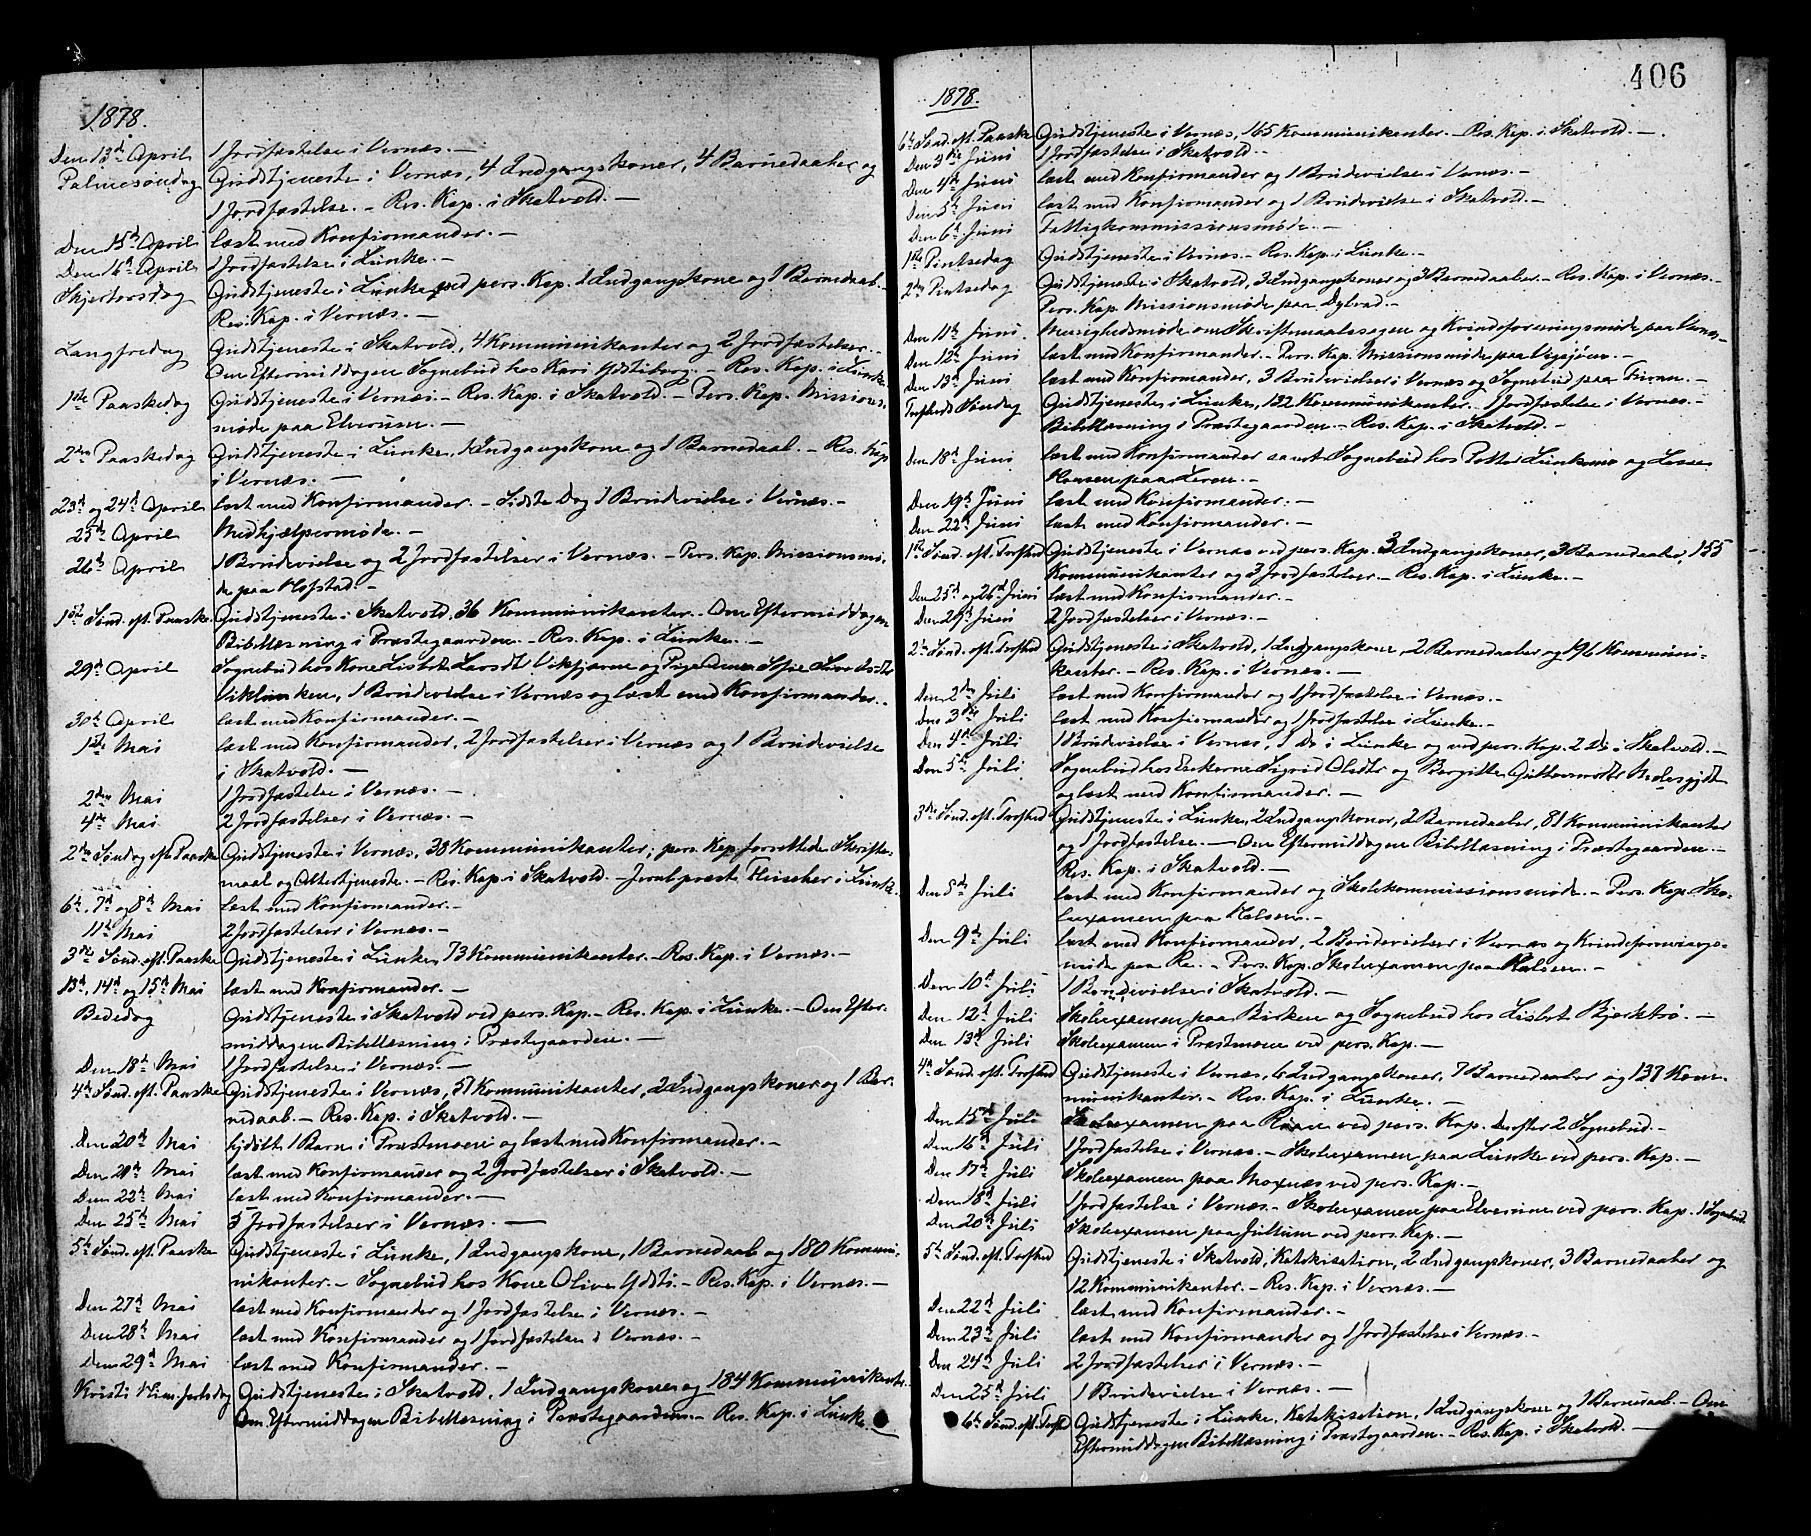 1878.
Den 13d April 1 Jordfæstelse i Vernæs. —
Palmesøndag Gudstjeneste i Vernæs, 4 Indgangskoner, 4 Barnedaaber og
1 Jordfæstelse. – Res. Kap. i Skatvold. —
Den 15d April læst med Konfirmander. —
Den 16d April 1 Jordfæstelse i Lånke. —
Skjertorsdag Gudstjeneste i Lånke ved pers. Kap. 1 Indgangskone og 1 Barnedaab. –
Res. Kap. i Vernæs. —
Langfredag Gudstjeneste i Skatvold, 4 Kommunikanter og 2 Jordfæstelser. –
Om Eftermiddagen Sognebud hos Kari Ydstiborg. – Res. Kap. i Lånke.
1ste Paaskedag Gudstjeneste i Vernæs. – Res. Kap. i Skatvold. – Pers. Kap. Missions-
møde paa Elverum. —
2den Paaskedag Gudstjeneste i Lånke, 1 Indgangskone og 1 Barnedaab. – Res. Kap.
i Vernæs. —
23d og 24d April læst med Konfirmander. – Sidste Dag 1 Brudevielse i Vernæs. –
25d April Medhjælpermøde. —
26d April 1 Brudevielse og 2 Jordfæstelser i Vernæs. – Pers. Kap. Missionsmø-
de paa Hofstad. —
1ste Sønd. eft. Paaske Gudstjeneste i Skatvold, 36 Kommunikanter. – Om Eftermiddagen
Bibellæsning i Præstegaarden. – Res. Kap. i Lånke. —
29d April Sognebud hos Kone Lisbet Larsdt Vikhjarm og Pige
Viklunken, 1 Brudevielse i Vernæs og læst med Konfirmander. –
30d April læst med Konfirmander. —
1ste Mai læst med Konfirmander, 2 Jordfæstelser i Vernæs og 1 Brudevielse
i Skatvold. —
2den Mai 1 Jordfæstelse i Vernæs. —
4de Mai 2 Jordfæstelser i Vernæs. —
2den Søndag eft. Paaske Gudstjeneste i Vernæs, 38 Kommunikanter; pers. Kap. forrettede Skrifte-
maal og Altertjeneste. – Res. Kap. i Skatvold. – Feltpræst Fleischer i Lånke.
6te, 7d og 8d Mai læst med Konfirmander. —
11te Mai 2 Jordfæstelser i Vernæs. —
3die Sønd. eft. Paaske Gudstjeneste i Lånke, 73 Kommunikanter. – Res. Kap. i Vernæs. —
13d, 14d og 15d Mai læst med Konfirmander. —
Bededag Gudstjeneste i Skatvold ved pers. Kap. – Res. Kap. i Lånke. – Om Efter-
middagen Bibellæsning i Præstegaarden. —
Den 18d Mai 1 Jordfæstelse i Vernæs. —
4de Sønd. eft. Paaske Gudstjeneste i Vernæs, 51 Kommunikanter, 2 Indgangskoner og 1 Bar-
nedaab. – Res. Kap. i Skatvold. —
Den 20d Mai hjdøbt 1 Barn i Præstmoen og læst med Konfirmander. —
Den 21d Mai læst med Konfirmander og 2 Jordfæstelser i Skatvold. —
Den 22d Mai læst med Konfirmander. —
Den 25d Mai 3 Jordfæstelser i Vernæs. —
5te Sønd. eft. Paaske Gudstjeneste i Lånke, 1 Indgangskone, 1 Barnedaab og 180 Kommu-
nikanter. – Sognebud hos Kone Oline Ydsti. – Res. Kap. i Vernæs. —
Den 27d Mai læst med Konfirmander og 1 Jordfæstelse i Vernæs. —
Den 28d Mai læst med Konfirmander og 1 Jordfæstelse i Vernæs. —
Den 29d Mai læst med Konfirmander. —
Kristi Him. fartsdag Gudstjeneste i Skatvold, 1 Indgangskone og 184 Kommunikanter.
Om Eftermiddagen Bibellæsning i Præstegaarden. – Res. Kap. i Lånke. —
406
1878.
6te Sønd. eft. Paaske Gudstjeneste i Vernæs, 165 Kommunikanter. – Res. Kap. i Skatvold. —
Den 3die Juni 1 Jordfæstelse i Skatvold. –
Den 4d Juni læst med Konfirmander og 1 Brudevielse i Vernæs. —
Den 5d Juni læst med Konfirmander og 1 Brudevielse i Skatvold. —
Den 6d Juni Fattigkommissionsmøde. —
1ste Pintsedag Gudstjeneste i Vernæs. – Res. Kap. i Lånke. –
2den Pintsedag Gudstjeneste i Skatvold, 3 Indgangskoner og 3 Barnedaaber. – Res. Kap. i Vernæs. –
Pers. Kap. Missionsmøde paa Dyblvad. —
Den 11te Juni Menighedsmøde om Skriftemaalssagen og Kvindeforeningsmøde paa Vernæs. –
Den 12te Juni læst med Konfirmander. – Pers. Kap. Missionsmøde paa Vigsjøen. —
Den 13d Juni læst med Konfirmander, 3 Brudevielser i Vernæs og Sognebud paa Tuven. —
Trefholds Søndag Gudstjeneste i Lånke, 122 Kommunikanter. 1 Jordfæstelse i Vernæs. –
Bibellæsning i Præstegaarden. – Res. Kap. i Skatvold. —
Den 18d Juni læst med Konfirmander samt Sognebud hos Petter Lunkamo og Lasse
Hansen paa Leren. —
Den 19d Juni læst med Konfirmander. —
Den 22d Juni læst med Konfirmander. —
1ste Sønd. eft. Trefhed Gudstjeneste i Vernæs ved pers. Kap. 3 Indgangskoner, 3 Barnedaaber, 155
Kommunikanter og 3 Jordfæstelser. – Res. Kap. i Lånke. —
Den 25d og 26d Juni læst med Konfirmander. —
Den 29d Juni 2 Jordfæstelser i Vernæs. —
2den Sønd. eft. Trefhed Gudstjeneste i Skatvold, 1 Indgangskone, 2 Barnedaaber og 196 Kommuni-
kanter. – Res. Kap. i Vernæs. —
Den 2den Juli læst med Konfirmander og 1 Jordfæstelse i Vernæs. —
Den 3die Juli læst med Konfirmander og 1 Jordfæstelse i Lånke. —
Den 4d Juli 1 Brudevielse i Vernæs, 1 Do i Lånke og ved pers. Kap. 2 Do i Skatvold. —
Den 5d Juli Sognebud hos Enkerne Sigrid Olsdtr og Bergitte Guttormsdtr Medesgjdt
og læst med Konfirmander. —
3die Sønd. eft. Trefhed Gudstjeneste i Lånke, 2 Indgangskoner, 2 Barnedaaber, 81 Kommunikanter
og 1 Jordfæstelse. — Om Eftermiddagen Bibellæsning i Præstegaarden. –
Res. Kap. i Skatvold. —
Den 8d Juli læst med Konfirmander og Skolekommissionsmøde. – Pers. Kap. Sko-
leexamen paa Halsen. —
Den 9d Juli læst med Konfirmander, 2 Brudevielser i Vernæs og Kvindeforenings-
møde paa Re. – Pers. Kap. Skoleexamen paa Halsen. —
Den 10d Juli 1 Brudevielse i Skatvold. —
Den 12d Juli Skoleexamen paa Birken og Sognebud hos Lisbet Bjerktrø. —
Den 13d Juli Skoleexamen i Præstmoen ved pers. Kap. —
4de Sønd. eft. Trefhed Gudstjeneste i Vernæs, 6 Indgangskoner, 7 Barnedaaber og 137 Kom-
munikanter. – Res. Kap. i Lånke. —
Den 15d Juli Skoleexamen paa ved pers. Kap. derefter 2 Sognebud. –
Den 16d Juli 1 Jordfæstelse i Vernæs. – Skoleexamen paa Lånke ved pers. Kap. —
Den 17d Juli Skoleexamen paa Moxnæs ved pers. Kap. —
Den 18d Juli 1 Jordfæstelse i Vernæs. – Skoleexamen paa Elverum ved pers. Kap. 1 Sognebud.
Den 20d Juli Skoleexamen paa Jullum ved pers. Kap. —
5te Sønd. eft. Trefhed Gudstjeneste i Skatvold, Katekisation, 2 Indgangskoner, 3 Barnedaaber og
12 Kommunikanter. – Res. Kap. i Vernæs. —
Den 22d Juli læst med Konfirmander. —
Den 23d Juli læst med Konfirmander og 1 Jordfæstelse i Vernæs. —
Den 24d Juli 2 Jordfæstelser i Vernæs. —
Den 25d Juli 1 Brudevielse i Vernæs. —
6te Sønd. eft. Trefhed Gudstjeneste i Lånke, Katekisation, 1 Indgangskone og 1 Barnedaab. – Om
Eftermiddagen Bibellæsning i Præstegaarden. – Res. Kap. i Skatvold. —